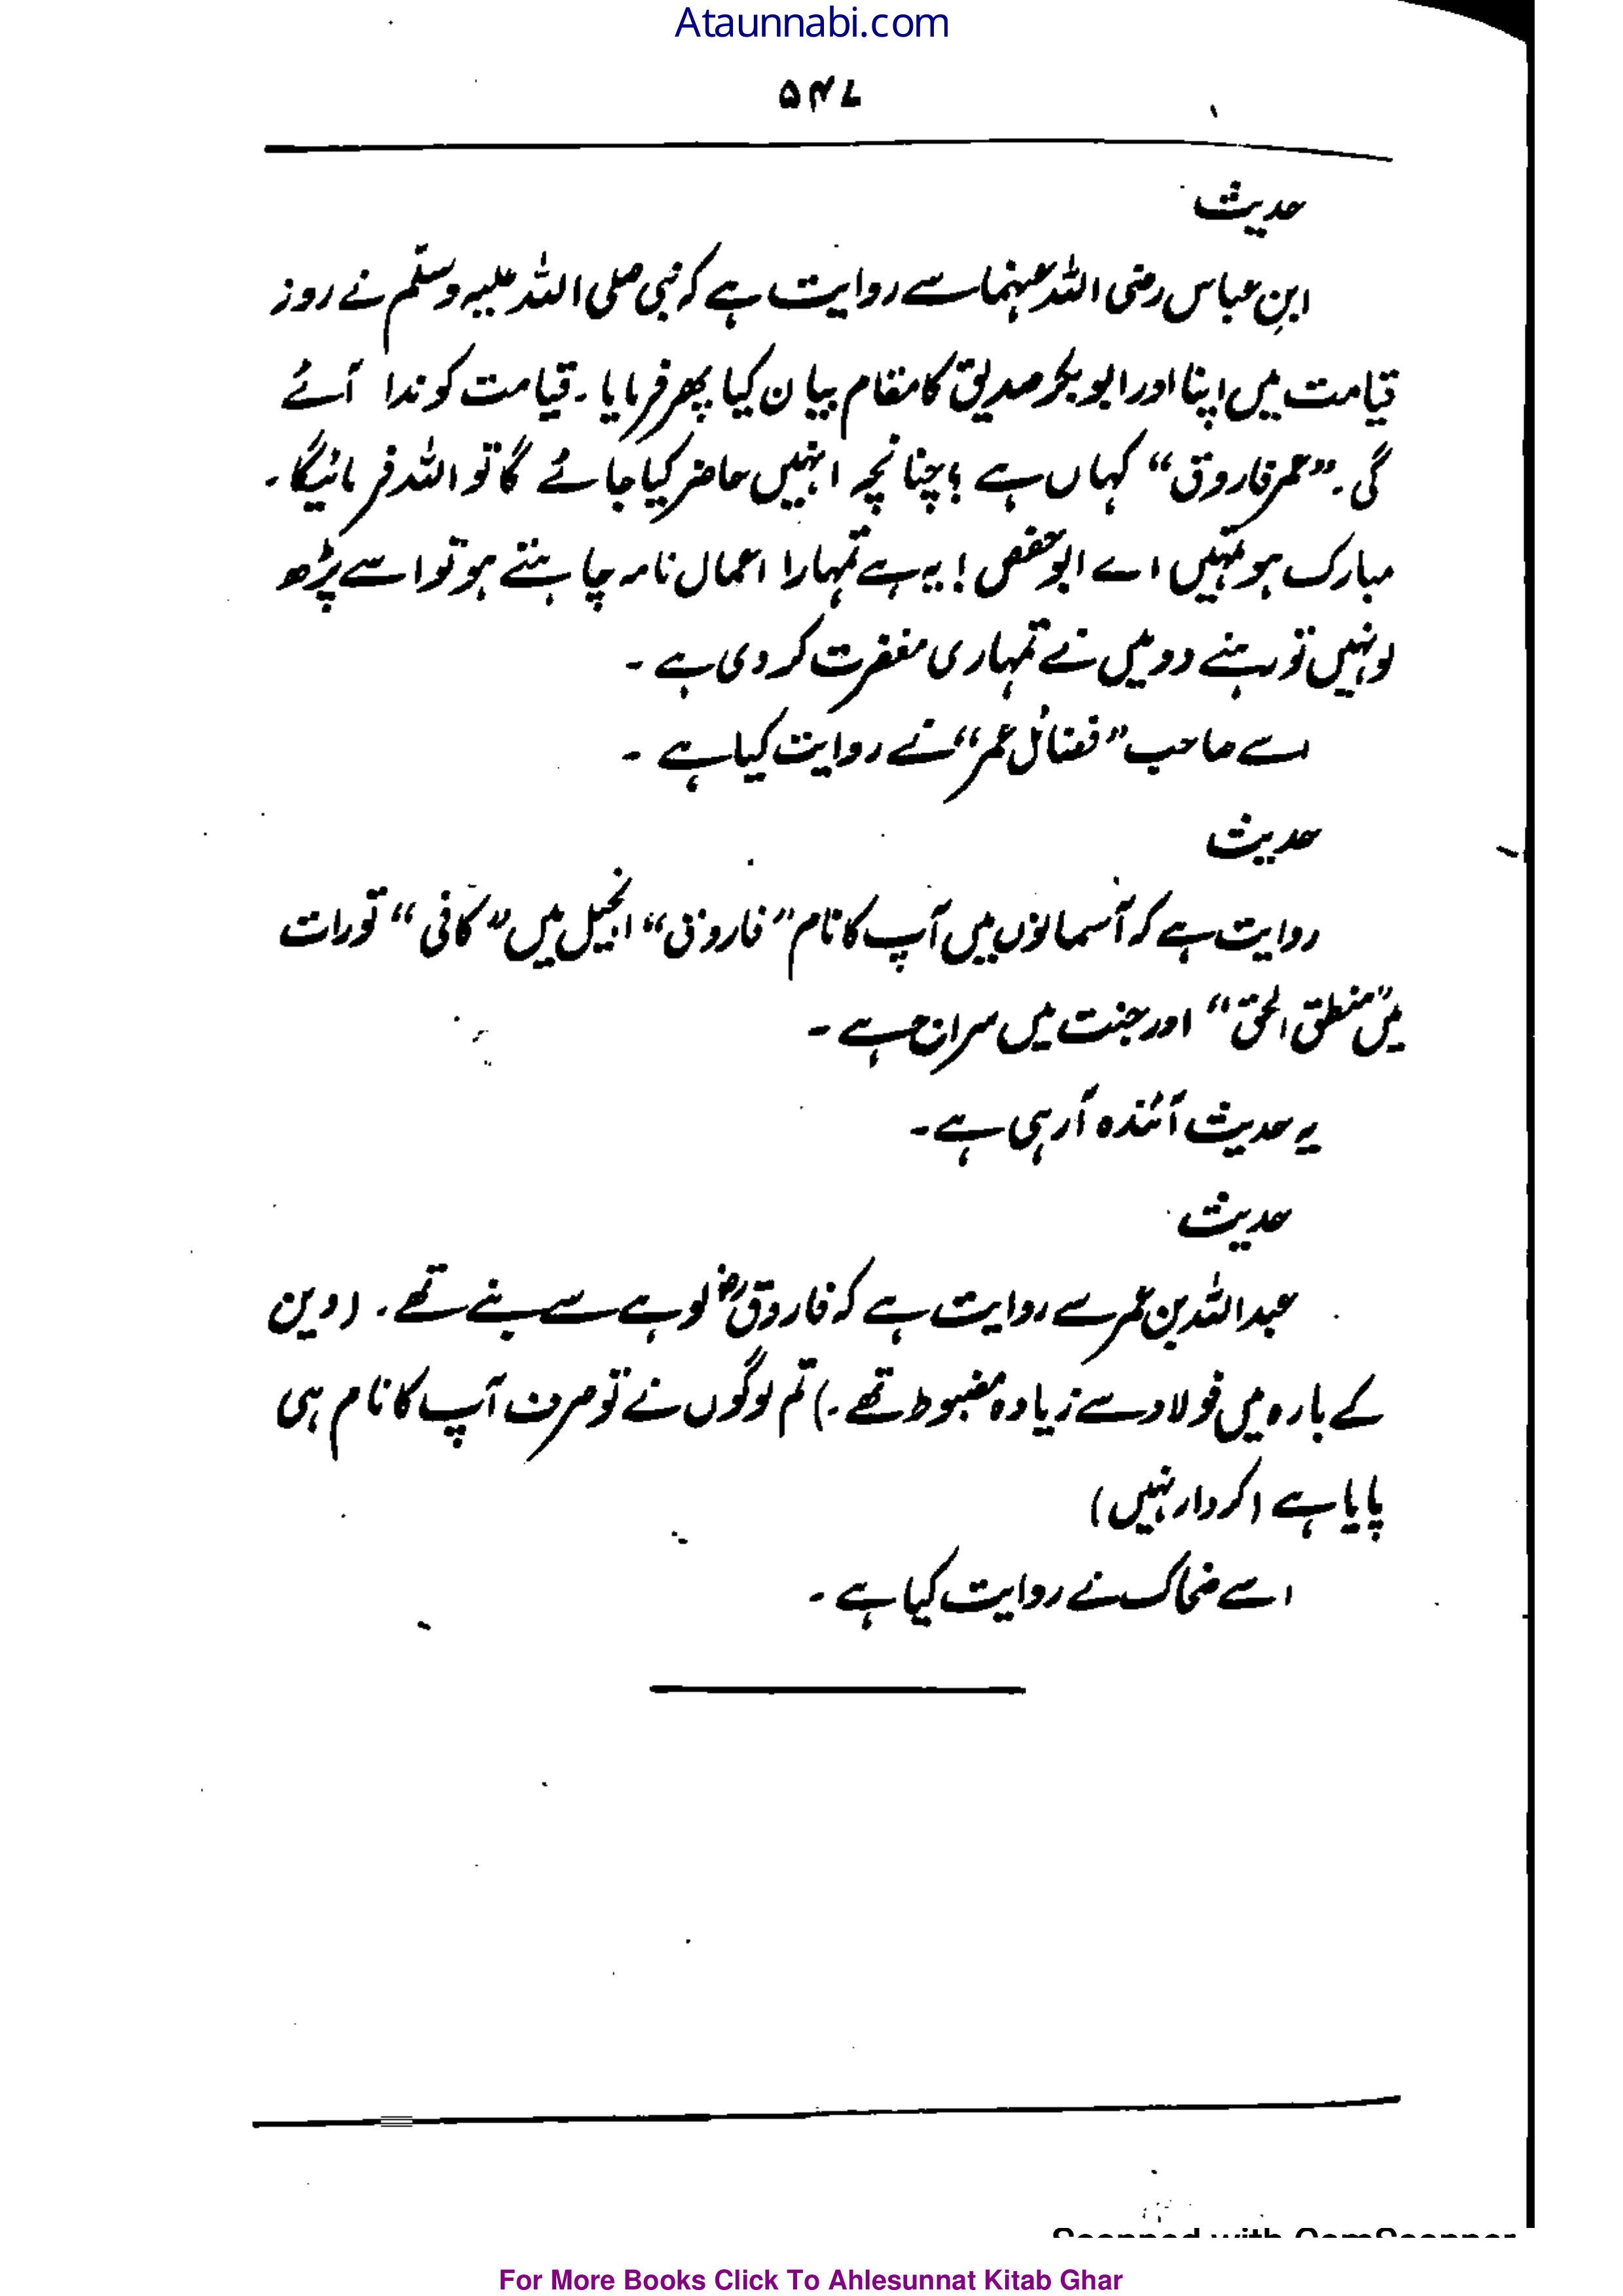 Ataunnabi.com
۵۴۷
حدیث
ابنِ عباس رضی اللہ عنہما سے روایت ہے کہ نبی صلی اللہ علیہ وسلّم نے روز
قیامت میں اپنا اور ابو بکر صدیق کا مقام بیان کیا پھر فرمایا۔ قیامت کو ندا آئے
گی۔ ”عمر فاروق“ کہاں ہے؟ چنانچہ انہیں حاضر کیا جائے گا تو اللہ فرمائیگا۔
مبارک ہو تمہیں اے ابو حفص! یہ ہے تمہارا اعمال نامہ چاہتے ہو تو اسے پڑھ
لو نہیں تو رہنے دو میں نے تمہاری مغفرت کر دی ہے۔
اسے صاحب ”فضائل عمر“ نے روایت کیا ہے۔
حدیث
روایت ہے کہ آسمانوں میں آپ کا نام ”فاروق“ انجیل میں ”کافی“ تورات
میں ”منطق الحق“ اور جنت میں سراج ہے۔
یہ حدیث آئندہ آ رہی ہے۔
حدیث
عبداللہ بن عمر سے روایت ہے کہ فاروقؓ لوہے سے بنے تھے۔ (دین
کے بارہ میں فولاد سے زیادہ مضبوط تھے۔) تم لوگوں نے تو صرف آپ کا نام ہی
پایا ہے (کردار نہیں)
اسے ضحاک نے روایت کیا ہے۔
Scanned with CamScanner
For More Books Click To Ahlesunnat Kitab Ghar